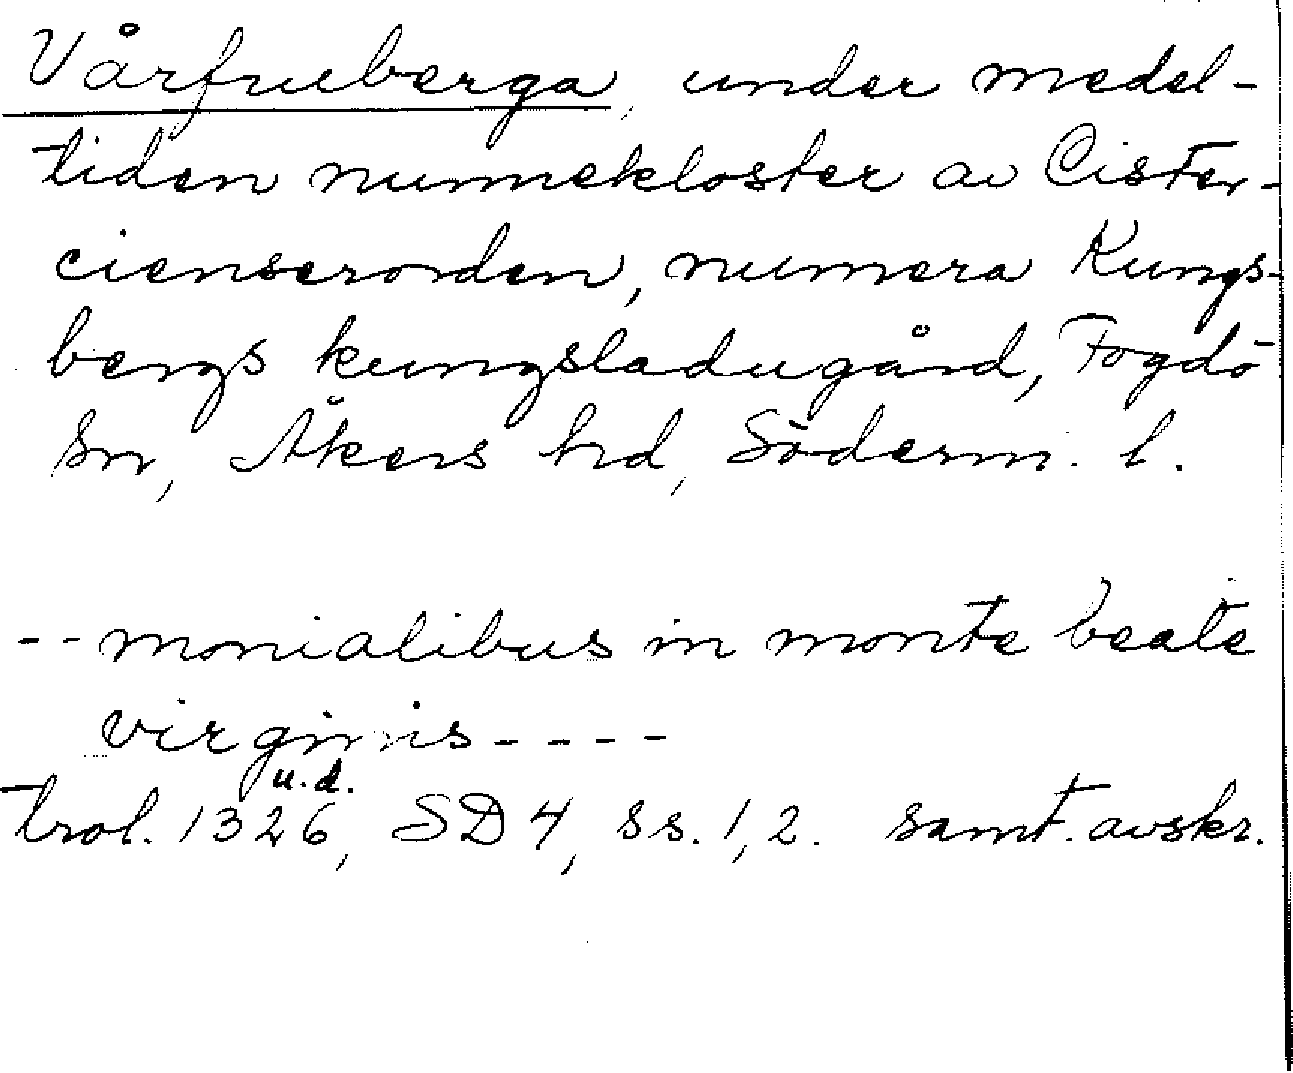 Vårfruberga, under medel-
tiden nunnekloster av Cister-
cienserorden, numera Kungs-
bergs kungsladugård, Fogdö
sn, Åkers hd, Söderm. l.
-- monialibus in monte beate
virginis ----
u.d.
trol. 1326, SD 4, ss. 1, 2. samt. avskr.